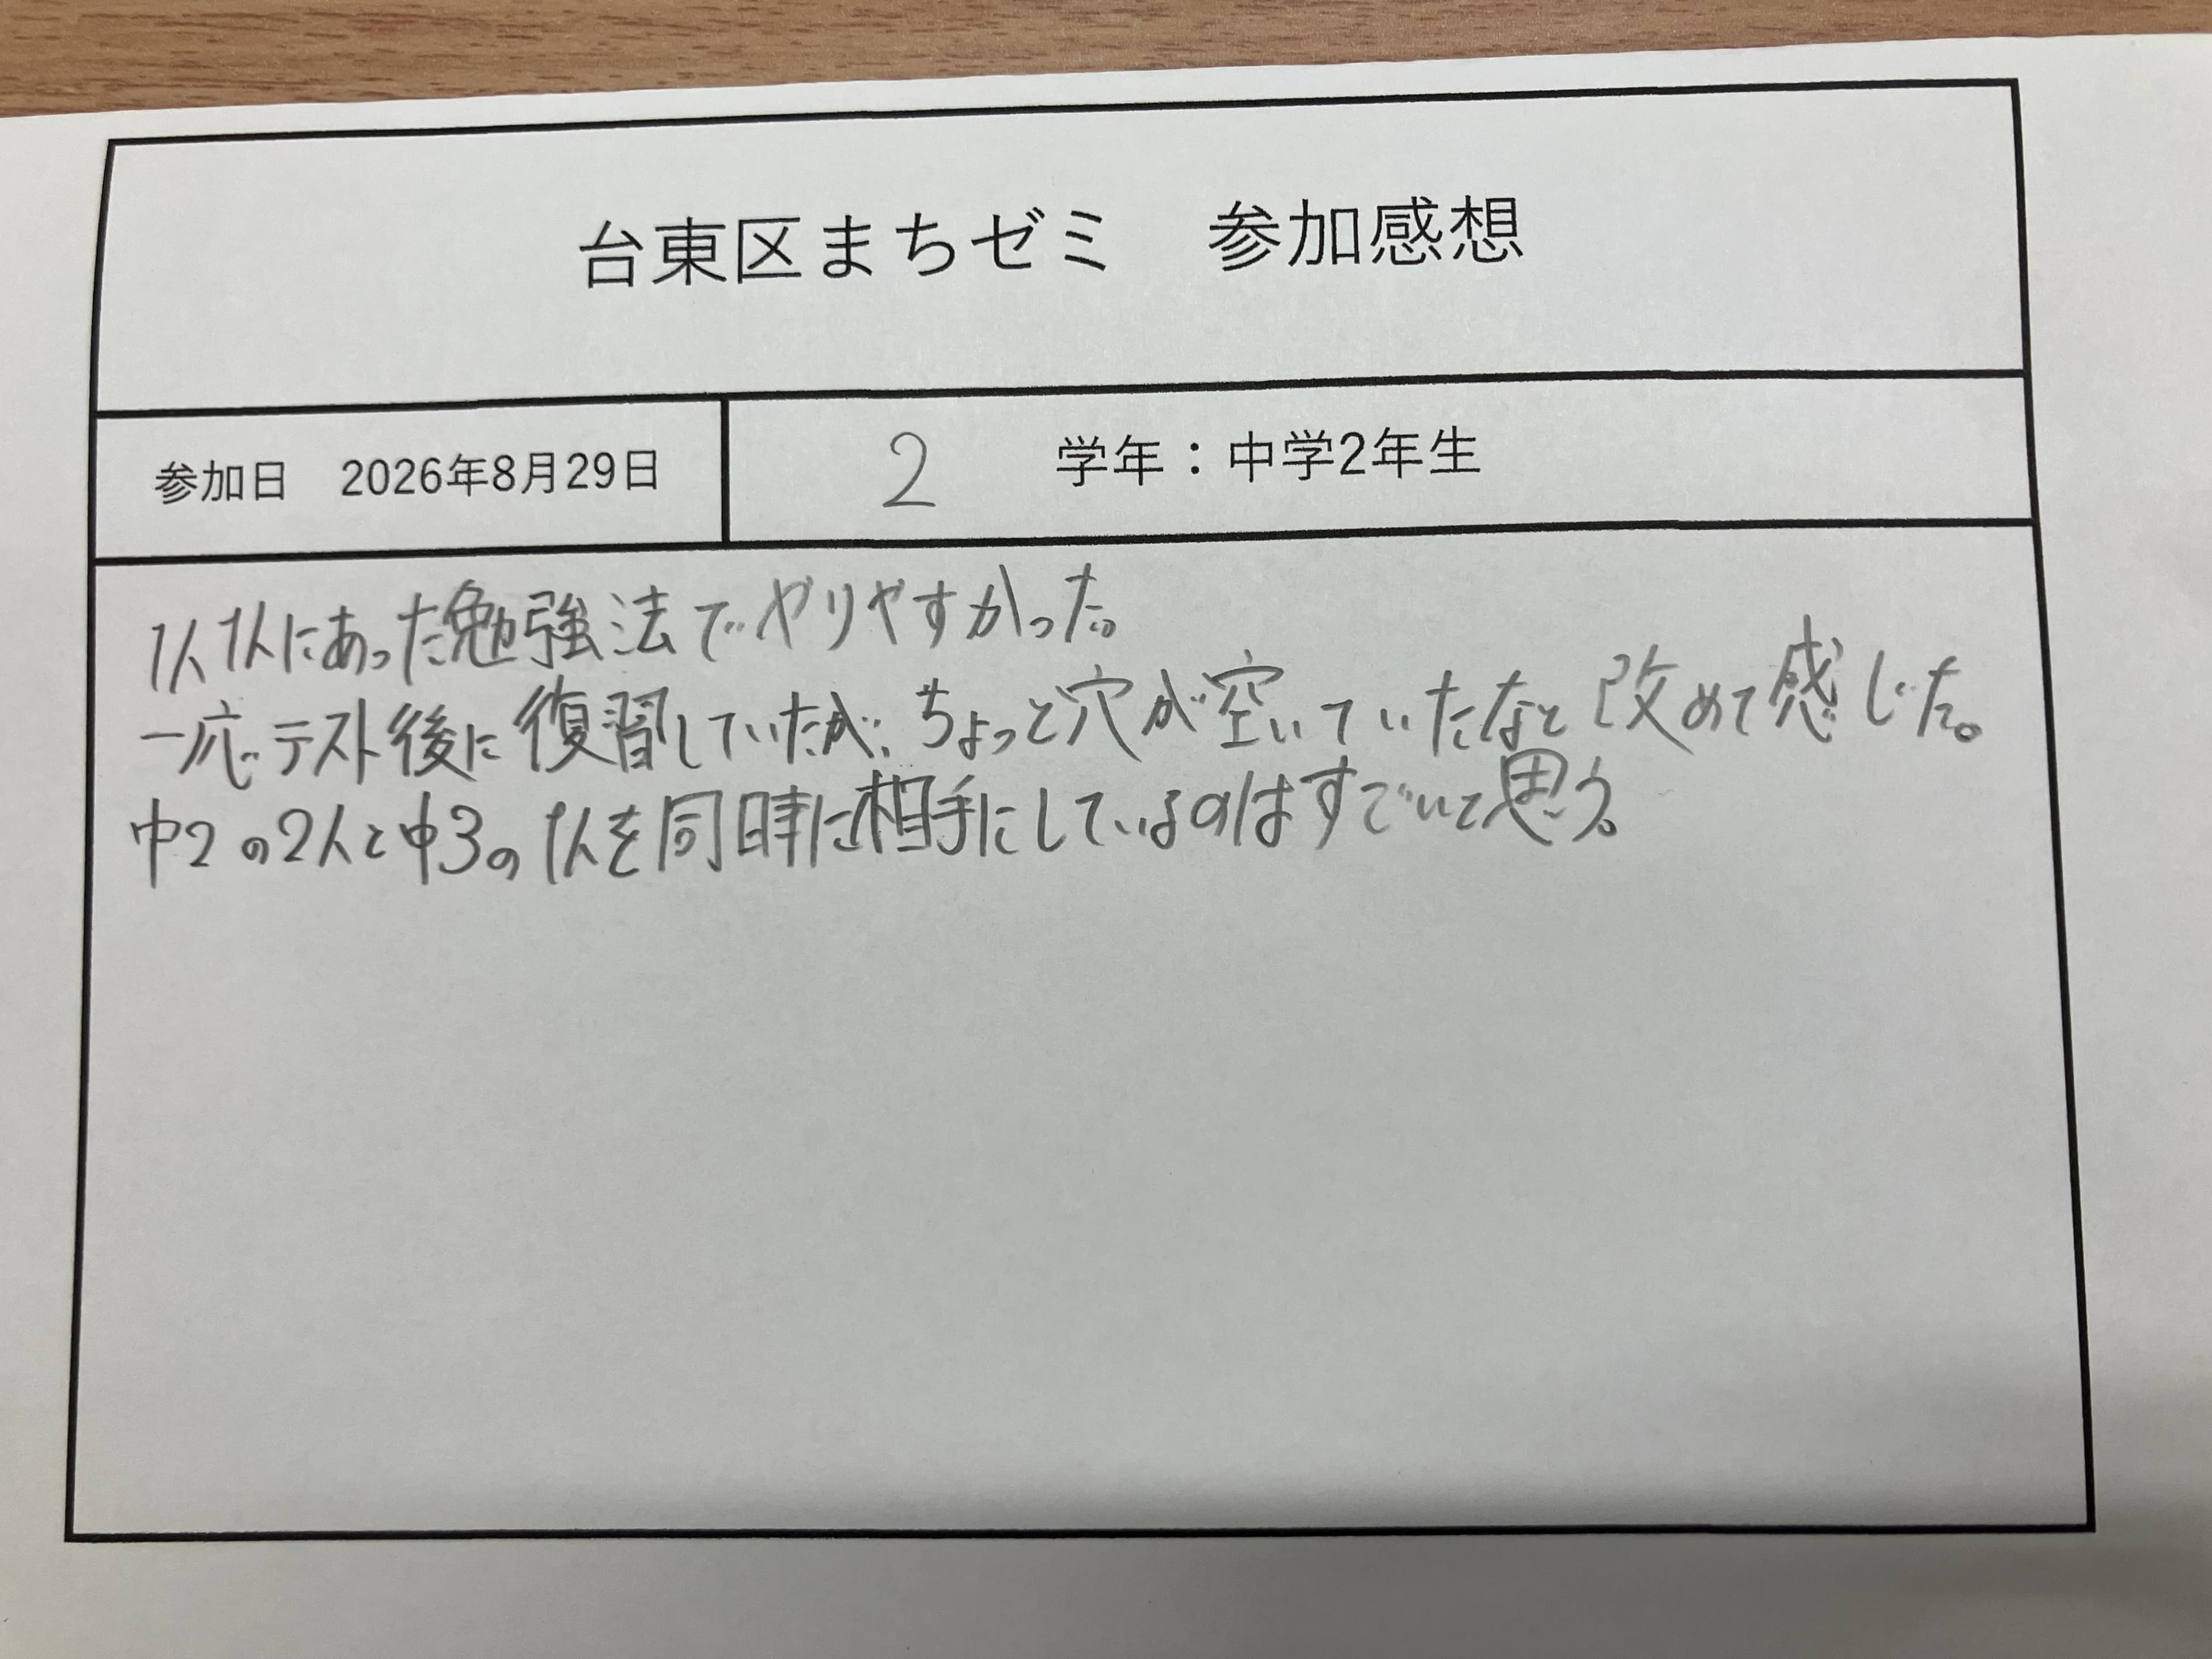 台東区まちゼミ　参加感想
参加日　2026年8月29日
2　学年：中学2年生
1人1人にあった勉強法でやりやすかった。
一応テスト後に復習していたが、ちょっと穴が空いていたなと改めて感じた。
中2の2人と中3の1人を同時に相手にしているのはすごいと思う。